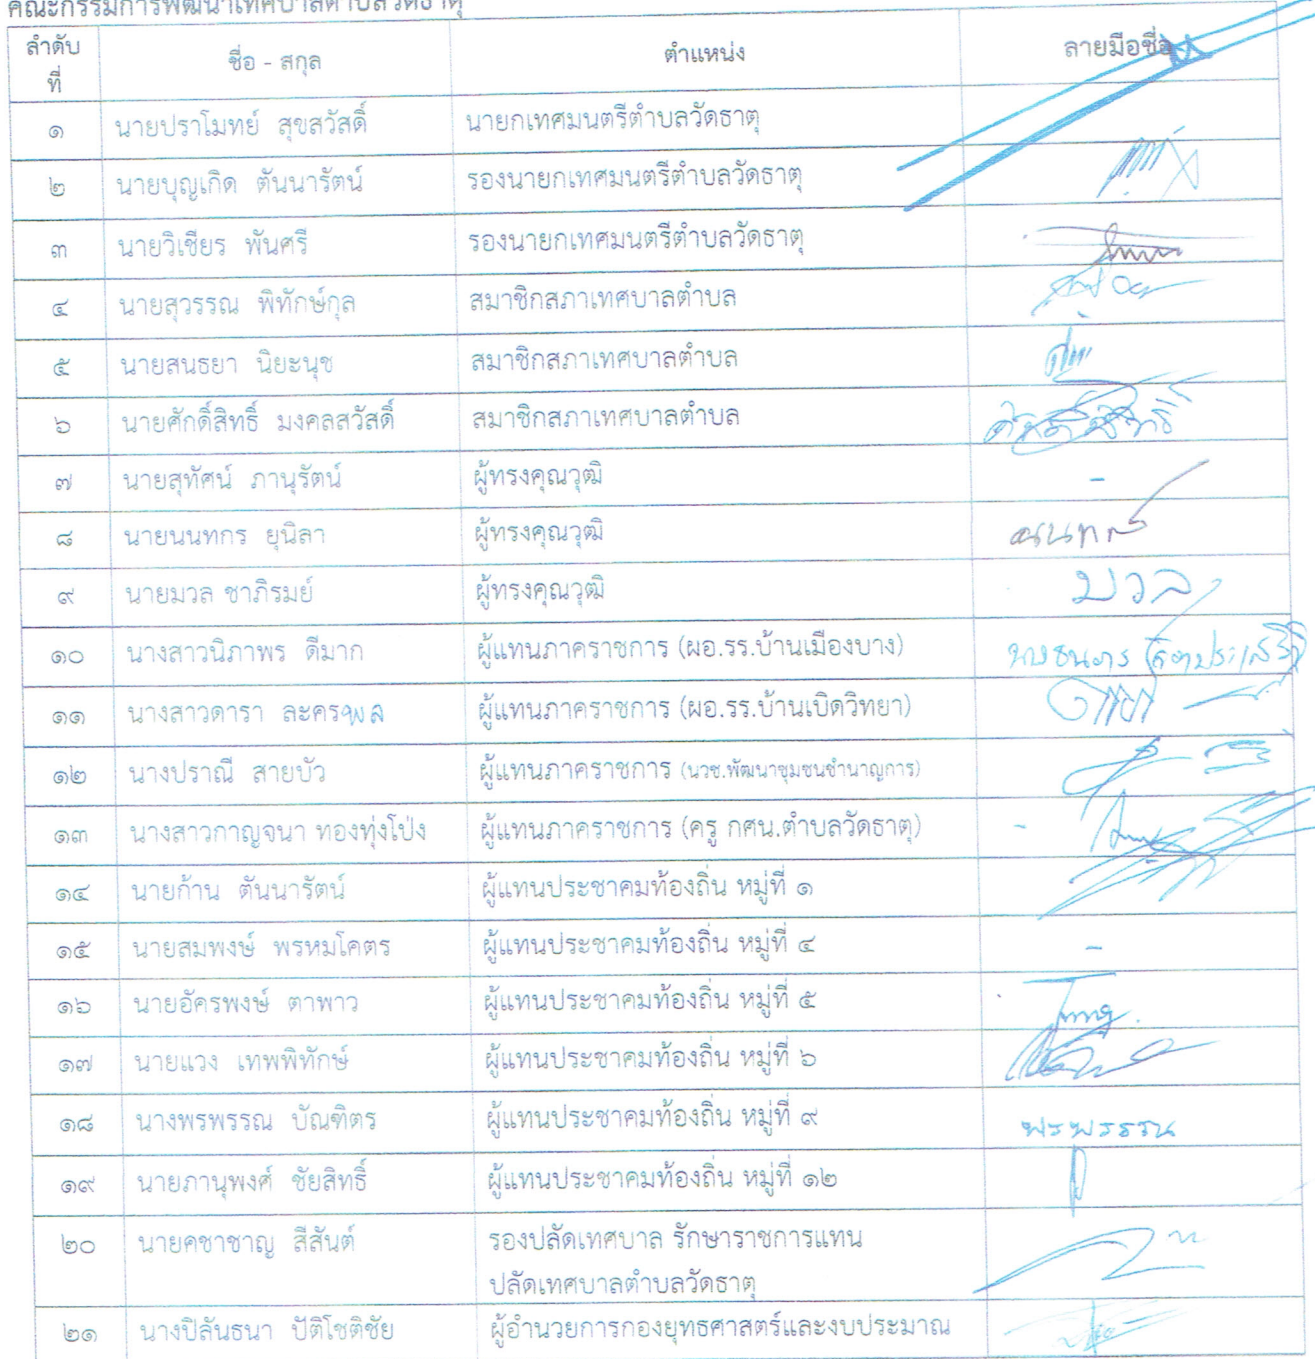 คณะกรรมการพัฒนาเทศบาลตำบลวัดธาตุ
ลำดับที่ ชื่อ - สกุล ตำแหน่ง ลายมือชื่อ
๑ นายปราโมทย์ สุขสวัสดิ์ นายกเทศมนตรีตำบลวัดธาตุ
๒ นายบุญเกิด ตันนารัตน์ รองนายกเทศมนตรีตำบลวัดธาตุ
๓ นายวิเชียร พันศรี รองนายกเทศมนตรีตำบลวัดธาตุ
๔ นายสุวรรณ พิทักษ์กุล สมาชิกสภาเทศบาลตำบล
๕ นายสนธยา นิยะนุช สมาชิกสภาเทศบาลตำบล
๖ นายศักดิ์สิทธิ์ มงคลสวัสดิ์ สมาชิกสภาเทศบาลตำบล ศักดิ์สิทธิ์
๗ นายสุทัศน์ ภานุรัตน์ ผู้ทรงคุณวุฒิ -
๘ นายนนทกร ยุนิลา ผู้ทรงคุณวุฒิ
๙ นายมวล ชาภิรมย์ ผู้ทรงคุณวุฒิ มวล
๑๐ นางสาวนิภาพร ดีมาก ผู้แทนภาคราชการ (ผอ.รร.บ้านเมืองบาง)
๑๑ นางสาวดารา ละครพล ผู้แทนภาคราชการ (ผอ.รร.บ้านเบิดวิทยา)
๑๒ นางปราณี สายบัว ผู้แทนภาคราชการ (นวช.พัฒนาชุมชนชำนาญการ)
๑๓ นางสาวกาญจนา ทองทุ่งโป่ง ผู้แทนภาคราชการ (ครู กศน.ตำบลวัดธาตุ) -
๑๔ นายก้าน ตันนารัตน์ ผู้แทนประชาคมท้องถิ่น หมู่ที่ ๑
๑๕ นายสมพงษ์ พรหมโคตร ผู้แทนประชาคมท้องถิ่น หมู่ที่ ๔ -
๑๖ นายอัครพงษ์ ตาพาว ผู้แทนประชาคมท้องถิ่น หมู่ที่ ๕
๑๗ นายแวง เทพพิทักษ์ ผู้แทนประชาคมท้องถิ่น หมู่ที่ ๖
๑๘ นางพรพรรณ บัณฑิตร ผู้แทนประชาคมท้องถิ่น หมู่ที่ ๙ พรพรรณ
๑๙ นายภานุพงศ์ ชัยสิทธิ์ ผู้แทนประชาคมท้องถิ่น หมู่ที่ ๑๒
๒๐ นายคชาชาญ สีสันต์ รองปลัดเทศบาล รักษาราชการแทน
ปลัดเทศบาลตำบลวัดธาตุ
๒๑ นางปิลันธนา ปัติโชติชัย ผู้อำนวยการกองยุทธศาสตร์และงบประมาณ